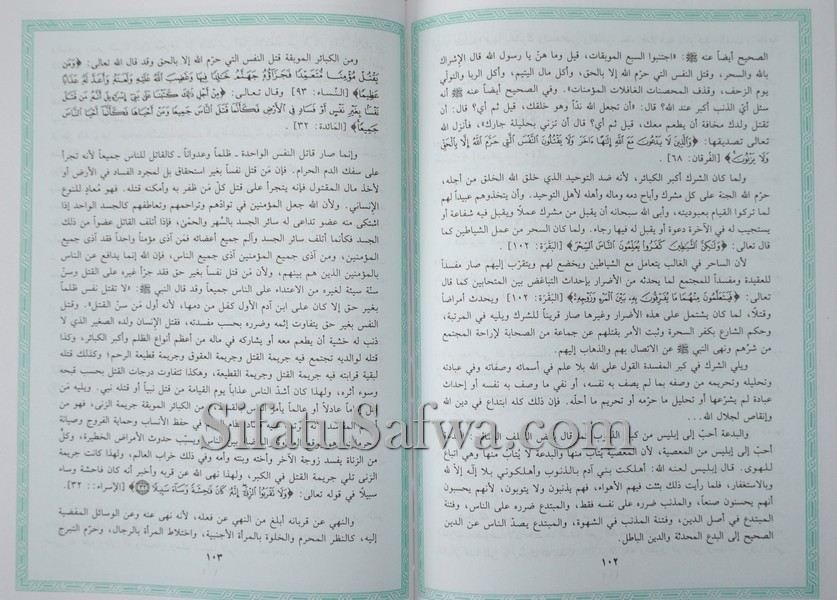 الصحيح أيضاً عنه ﷺ: «اجتنبوا السبع الموبقات، قيل وما هنّ يا رسول الله قال الإشراك
بالله والسحر، وقتل النفس التي حرّم الله إلا بالحق، وأكل مال اليتيم، وأكل الربا والتولّي
يوم الزحف، وقذف المحصنات الغافلات المؤمنات». وفي الصحيح أيضاً عنه ﷺ أنه
سئل أيّ الذنب أكبر عند الله؟ قال: «أن تجعل لله ندّاً وهو خلقك، قيل ثم أي؟ قال: أن
تقتل ولدك مخافة أن يطعم معك، قيل ثم أي؟ قال أن تزني بحليلة جارك»، فأنزل الله
تعالى تصديقها: ﴿وَالَّذِينَ لَا يَدْعُونَ مَعَ اللَّهِ إِلَٰهًا ءَاخَرَ وَلَا يَقْتُلُونَ النَّفْسَ الَّتِي حَرَّمَ اللَّهُ إِلَّا بِالْحَقِّ
وَلَا يَزْنُونَ﴾ [الفُرقان: ٦٨].
ولما كان الشرك أكبر الكبائر، لأنه ضد التوحيد الذي خلق الله الخلق من أجله،
حرّم الله الجنة على كل مشرك وأباح دمه وماله وأهله لأهل التوحيد. وأن يتخذوهم عبيداً لهم
لما تركوا القيام بعبوديته، وأبى الله سبحانه أن يقبل من مشرك عملاً ويقبل فيه شفاعة أو
يستجيب له في الآخرة دعوة أو يقبل له فيها رجاء. ولما كان السحر من عمل الشياطين كما
قال تعالى: ﴿وَلَٰكِنَّ الشَّيَاطِينَ كَفَرُوا يُعَلِّمُونَ النَّاسَ السِّحْرَ﴾ [البَقَرَة: ١٠٢].
لأن الساحر في الغالب يتعامل مع الشياطين ويخضع لهم ويتقرّب إليهم صار مفسداً
للعقيدة ومفسداً للمجتمع لما يحدثه من الأضرار بإحداث التباغض بين المتحابين كما قال
تعالى: ﴿فَيَتَعَلَّمُونَ مِنْهُمَا مَا يُفَرِّقُونَ بِهِ بَيْنَ الْمَرْءِ وَزَوْجِهِ﴾ [البَقَرَة: ١٠٢] ويحدث أمراضاً
وقتلًا، لما كان يشتمل على هذه الأضرار وغيرها صار قريناً للشرك ويليه في المرتبة،
وحكم الشارع بكفر السحرة وثبت الأمر بقتلهم عن جماعة من الصحابة لإراحة المجتمع
من شرّهم ونهى النبي ﷺ عن الاتصال بهم والذهاب إليهم.
ويلي الشرك في كبر المفسدة القول على الله بلا علم في أسمائه وصفاته وفي عبادته
وتحليله وتحريمه من وصفه بما لم يصف به نفسه، أو نفي ما وصف به نفسه أو إحداث
عبادة لم يشرّعها أو تحليل ما حرّمه أو تحريم ما أحلّه. فإن ذلك كله ابتداع في دين الله
وإنقاص لجلال الله...
والبدعة أحبّ إلى إبليس من كبار الذنوب كما قال بعض السلف
أحبّ إلى إبليس من المعصية، لأن المعصية يُتاب منها والبدعة لا يُتاب منها وهي اتباع
للهوى. قال إبليس لعنه الله: أهلكت بني آدم بالذنوب وأهلكوني بلا إله إلا الله
وبالاستغفار، فلما رأيت ذلك بثثت فيهم الأهواء، فهم يذنبون ولا يتوبون، لأنهم يحسبون
أنهم يحسنون صنعاً، والمذنب ضرره على نفسه فقط، والمبتدع ضرره على الناس، وفتنة
المبتدع في أصل الدين، وفتنة المذنب في الشهوة، والمبتدع يصدّ الناس عن الدين
الصحيح إلى البدع المحدثة والدين الباطل.
١٠٢
ومن الكبائر الموبقة قتل النفس التي حرّم الله إلا بالحق وقد قال الله تعالى: ﴿وَمَن
يَقْتُلْ مُؤْمِنًا مُتَعَمِّدًا فَجَزَاؤُهُ جَهَنَّمُ خَالِدًا فِيهَا وَغَضِبَ اللَّهُ عَلَيْهِ وَلَعَنَهُ وَأَعَدَّ لَهُ عَذَابًا
عَظِيمًا﴾ [النِّساء: ٩٣] وقال تعالى: ﴿مِنْ أَجْلِ ذَٰلِكَ كَتَبْنَا عَلَىٰ بَنِي إِسْرَائِيلَ أَنَّهُ مَن قَتَلَ
نَفْسًا بِغَيْرِ نَفْسٍ أَوْ فَسَادٍ فِي الْأَرْضِ فَكَأَنَّمَا قَتَلَ النَّاسَ جَمِيعًا وَمَنْ أَحْيَاهَا فَكَأَنَّمَا أَحْيَا النَّاسَ
جَمِيعًا﴾ [المَائدة: ٣٢].
وإنما صار قاتل النفس الواحدة ـ ظلماً وعدواناً ـ كالقاتل للناس جميعاً لأنه تجرأ
على سفك الدم الحرام. فإن مَن قتل نفساً بغير استحقاق بل لمجرد الفساد في الأرض أو
لأخذ مال المقتول فإنه يتجرأ على قتل كلّ مَن ظفر به وأمكنه قتله. فهو مُعادٍ للنوع
الإنساني. ولأن الله جعل المؤمنين في توادّهم وتراحمهم وتعاطفهم كالجسد الواحد إذا
اشتكى منه عضو تداعى له سائر الجسد بالسَّهر والحمّى، فإذا أتلف القاتل عضواً من ذلك
الجسد فكأنما أتلف سائر الجسد وآلم جميع أعضائه فمَن آذى مؤمناً واحداً فقد آذى جميع
المؤمنين، ومن آذى جميع المؤمنين آذى جميع الناس، فإن الله إنما يدافع عن الناس
بالمؤمنين الذين هم بينهم، ولأن مَن قتل نفساً بغير حق فقد جرّأ غيره على القتل وسنّ
سنّة سيئة لغيره من الاعتداء على الناس جميعاً وقد قال النبي ﷺ: «لا تقتل نفس ظلماً
بغير حق إلا كان على ابن آدم الأول كفل من دمها، لأنه أول مَن سنّ القتل». وقتل
النفس بغير حق يتفاوت إثمه وضرره بحسب مفسدته، فقتل الإنسان ولده الصغير الذي لا
ذنب له خشية أن يطعم معه أو يشاركه في ماله من أعظم أنواع الظلم وأكبر الكبائر، وكذا
قتله لوالديه تجتمع فيه جريمة القتل وجريمة العقوق وجريمة قطيعة الرحم؛ وكذلك قتله
لبقية قرابته فيه جريمة القتل وجريمة القطيعة، وهكذا تتفاوت درجات القتل بحسب قبحه
وسوء أثره، ولهذا كان أشدّ الناس عذاباً يوم القيامة من قتل نبياً أو قتله نبي. ويليه مَن
قتل إماماً عادلاً أو عالماً يأمر الناس بالقسط من الكبائر الموبقة جريمة الزنى، فهو من
في حفظ الأنساب وحماية الفروج وصيانة
الناس ويسبّب حدوث الأمراض الخطيرة، وكلّ
من الزناة يفسد زوجة الآخر وأخته وبنته وأمه وفي ذلك خراب العالم، ولهذا كانت جريمة
الزنى تلي جريمة القتل في الكبر، ولهذا نهى الله عن قربه وأخبر أنه كان فاحشة وساء
سبيلًا في قوله تعالى: ﴿وَلَا تَقْرَبُوا الزِّنَىٰ إِنَّهُ كَانَ فَاحِشَةً وَسَاءَ سَبِيلًا﴾ [الإسراء: ٣٢].
والنهي عن قربانه أبلغ من النهي عن فعله، لأنه نهى عنه وعن الوسائل المفضية
إليه، كالنظر المحرم والخلوة بالمرأة الأجنبية، واختلاط المرأة بالرجال، وحرّم التبرج
١٠٣
SifatuSafwa.com